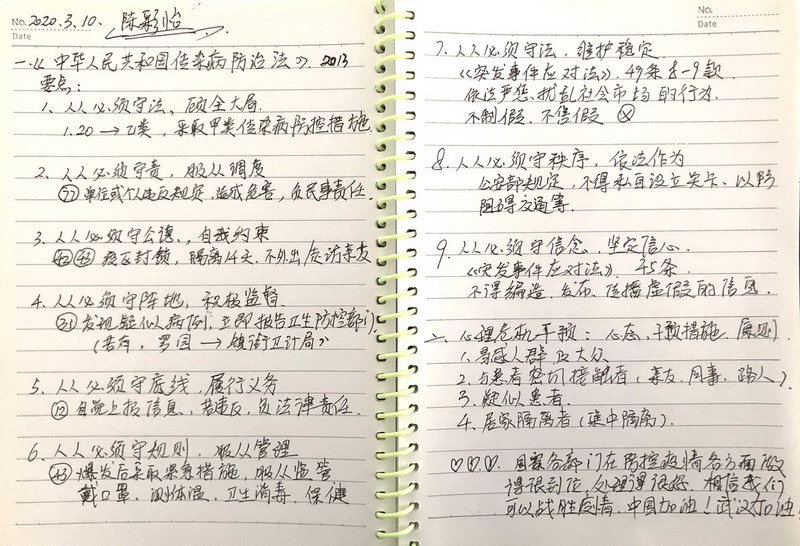 No. 2020.3.10. 陈彩怡
Date
一、《中华人民共和国传染病防治法》. 2013
要点:
1. 人人必须守法、顾全大局.
1.20 → 乙类, 采取甲类传染病防控措施.
2. 人人必须守责, 服从调度
⑦⑦ 单位或个人违反规定, 造成危害, 负民事责任.
3. 人人必须守公德, 自我约束
㊷ 疫区封锁, 隔离14天、不外出/走访亲友
4. 人人必须守阵地, 积极监督.
㉛ 发现疑似病例, 立即报告卫生防控部门
(若有, → 镇街卫计局)
5. 人人必须守底线, 履行义务
⑫ 自觉上报信息, 若违反, 负法律责任.
6. 人人必须守规则, 服从管理
㊸ 爆发后采取紧急措施, 服从监管
戴口罩, 测体温, 卫生消毒, 保健
No.
Date
7. 人人必须守法, 维护稳定.
《突发事件应对法》, 49条 8-9款.
依法严惩扰乱社会市场的行为.
不制假、不售假 ⊗
8. 人人必须守秩序, 依法作为
公安部规定, 不得私自设立关卡、以防
阻碍交通等.
9. 人人必须守信念, 坚定信心.
《突发事件应对法》. 45条.
不得编造、发布、传播虚假的信息.
二、心理危机干预: 心态, 干预措施. 原则.
1. 易感人群及大众.
2. 与患者密切接触者 (亲友、同事、路人).
3. 疑似患者.
4. 居家隔离者 (集中隔离).
♡♡♡. 国家各部门在防控疫情各方面做
得很到位, 处理得很好. 相信我们
可以战胜疫情, 中国加油! 武汉加油!